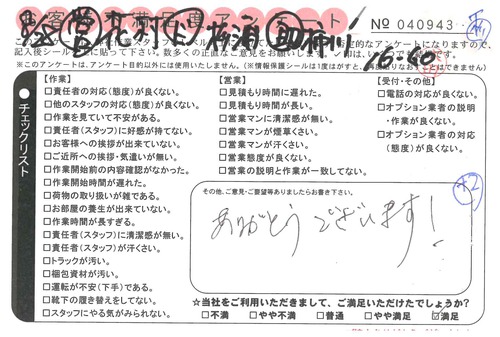 No 040943
16-60
※このアンケートは、アンケート目的以外には使用いたしません。(※情報保護シールは1度はがすと、再度貼りなおすことはできません)
チェックリスト
【作業】
□責任者の対応(態度)が良くない。
□他のスタッフの対応(態度)が良くない。
□作業を見ていて不安がある。
□責任者(スタッフ)に好感が持てない。
□お客様への挨拶が出来ていない。
□ご近所への挨拶・気遣いが無い。
□作業開始前の内容確認がなかった。
□作業開始時間が遅れた。
□荷物の取り扱いが雑である。
□お部屋の養生が出来ていない。
□作業時間が長すぎる。
□責任者(スタッフ)に清潔感が無い。
□責任者(スタッフ)が汗くさい。
□トラックが汚い。
□梱包資材が汚い。
□運転が不安(下手)である。
□靴下の履き替えをしてない。
□スタッフにやる気がみられない。
【営業】
□見積もり時間に遅れた。
□見積もり時間が長い。
□営業マンに清潔感が無い。
□営業マンが煙草くさい。
□営業マンが汗くさい。
□営業態度が良くない。
□営業の説明と作業が一致してない。
【受付・その他】
□電話の対応が良くない。
□オプション業者の説明・作業が良くない。
□オプション業者の対応(態度)が良くない。
その他、ご意見・ご要望等ありましたらお書き下さい。
ありがとうございます!
☆当社をご利用いただきまして、ご満足いただけたでしょうか?
□不満 □やや不満 □普通 □やや満足 ☑満足